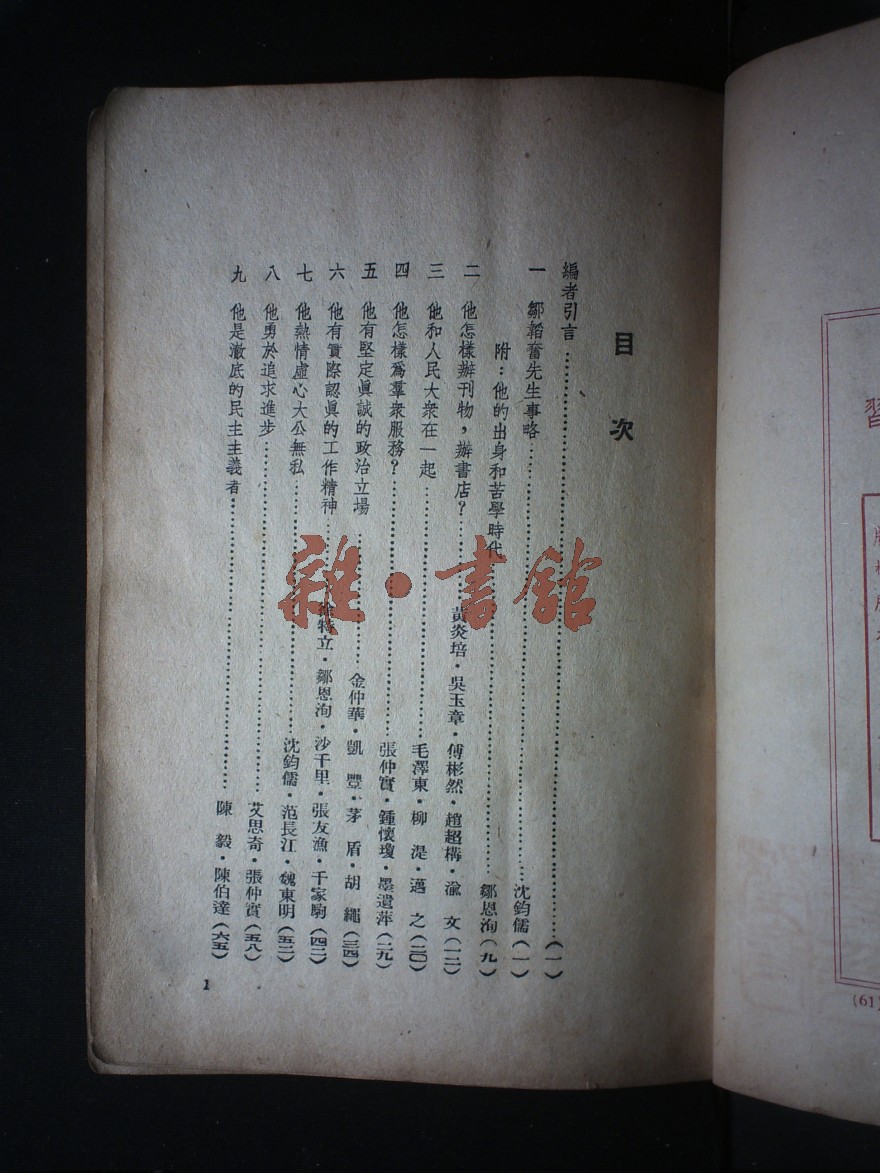 目次
編者引言……(一)
一 鄒韜奮先生事略……沈鈞儒(一)
附：他的出身和苦學時代……鄒恩洵(九)
二 他怎樣辦刊物，辦書店？……黃炎培・吳玉章・傅彬然・趙超構・渝 文(一二)
三 他和人民大衆在一起……毛澤東・柳 湜・邁 之(二〇)
四 他怎樣爲羣衆服務？……張仲實・鍾懷瓊・墨遺萍(二九)
五 他有堅定眞誠的政治立場……金仲華・凱 豐・茅 盾・胡 繩(三四)
六 他有實際認眞的工作精神……徐特立・鄒恩洵・沙千里・張友漁・千家駒(四二)
七 他熱情虛心大公無私……沈鈞儒・范長江・魏東明(五二)
八 他勇於追求進步……艾思奇・張仲實(五八)
九 他是澈底的民主主義者……陳 毅・陳伯達(六五)
1
雜・書館
習
(61)